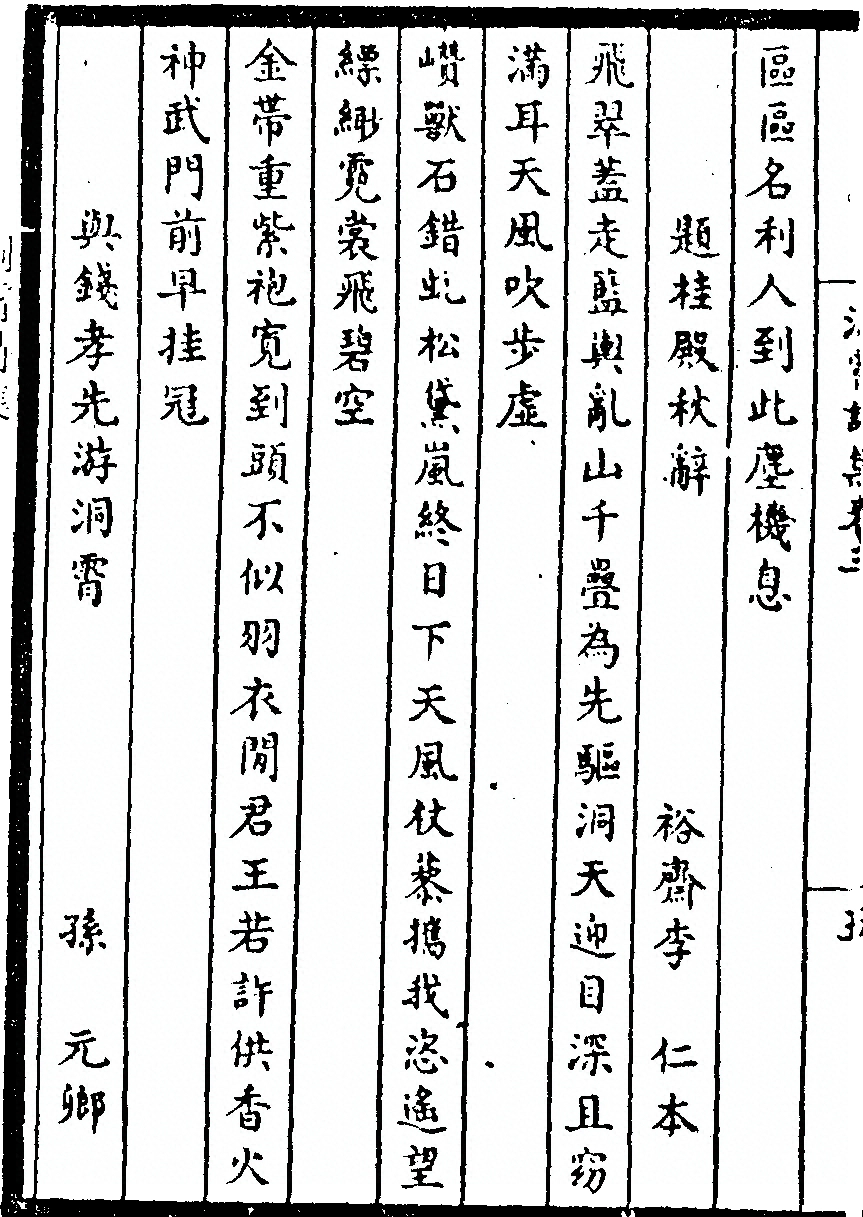 區區名利人到此塵機息
題桂殿秋辭
裕齋李 仁本
飛翠蓋走籃輿亂山千疊為先驅洞天迎目深且窈
滿耳天風吹步虛
巑獸石錯虬松黛嵐終日下天風杖藜攜我恣遙望
縹緲霓裳飛碧空
金帶重紫袍寬到頭不似羽衣閒君王若許供香火
神武門前早挂冠
與錢孝先游洞霄
孫 元卿